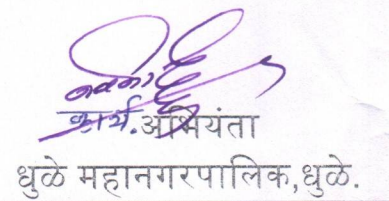 कार्य. अभियंता
धुळे महानगरपालिक,धुळे.